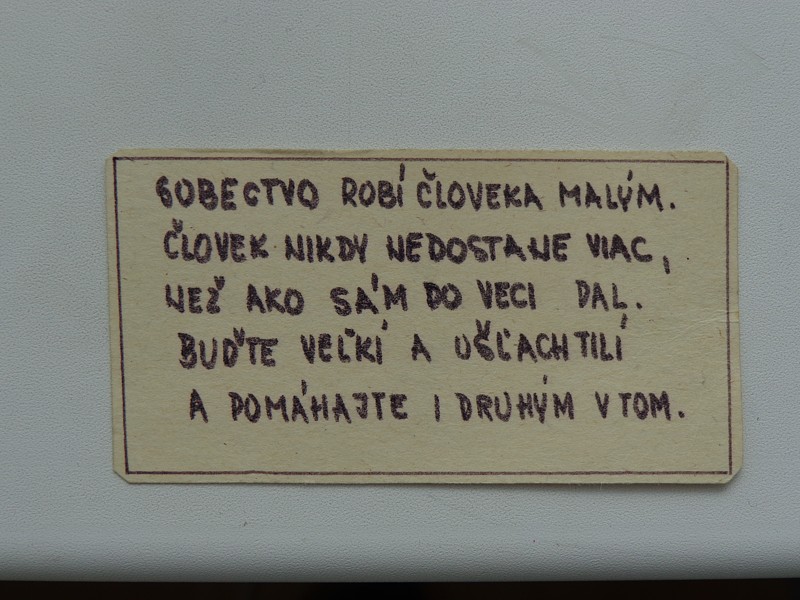 SOBECTVO ROBÍ ČLOVEKA MALÝM.
ČLOVEK NIKDY NEDOSTANE VIAC,
NEŽ AKO SÁM DO VECI DAL.
BUĎTE VEĽKÍ A UŠĽACHTILÍ
A POMÁHAJTE I DRUHÝM V TOM.